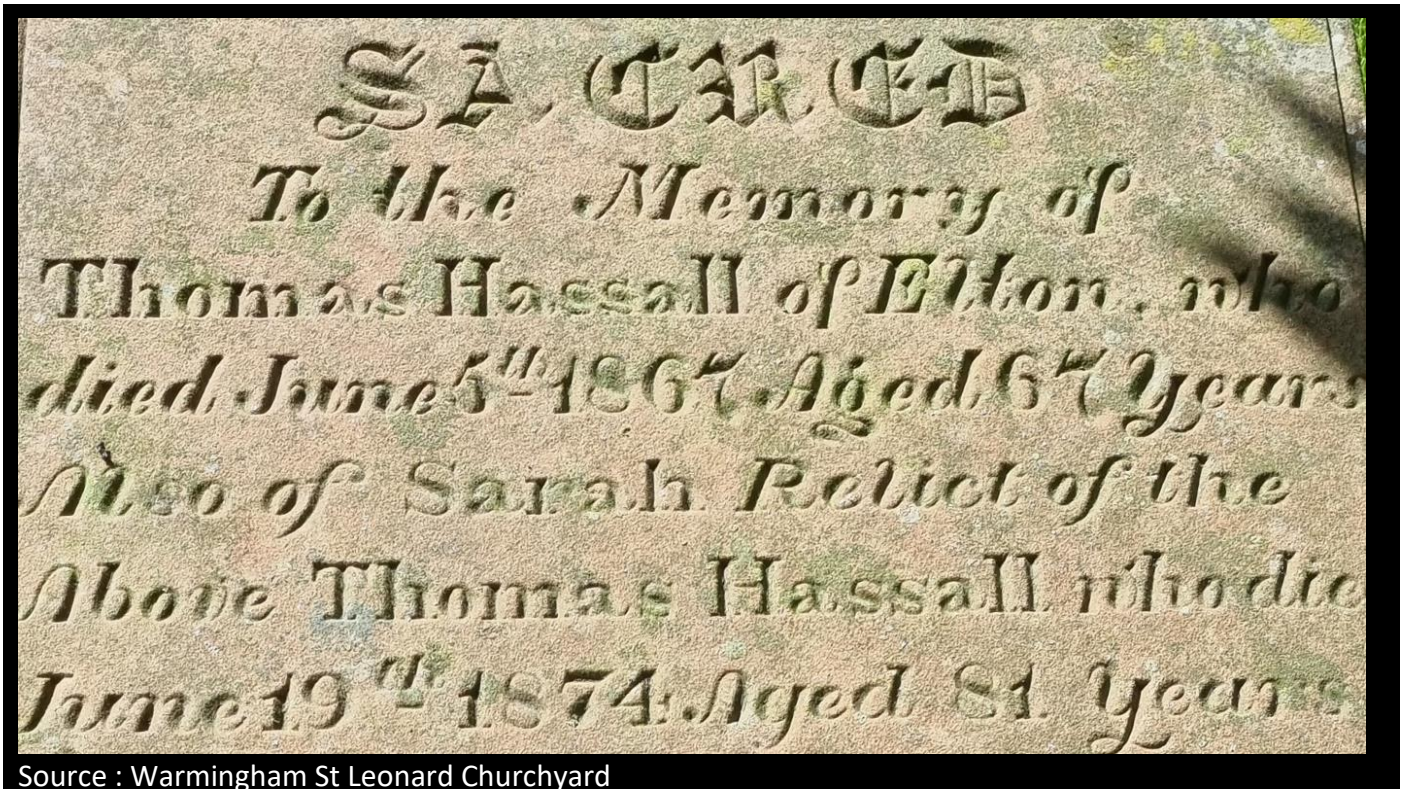 SACRED
To the Memory of
Thomas Hassall of Elton, who
died June 5th 1867 Aged 67 Years
Also of Sarah Relict of the
Above Thomas Hassall who die
June 19th 1874 Aged 81 Years
Source : Warmingham St Leonard Churchyard